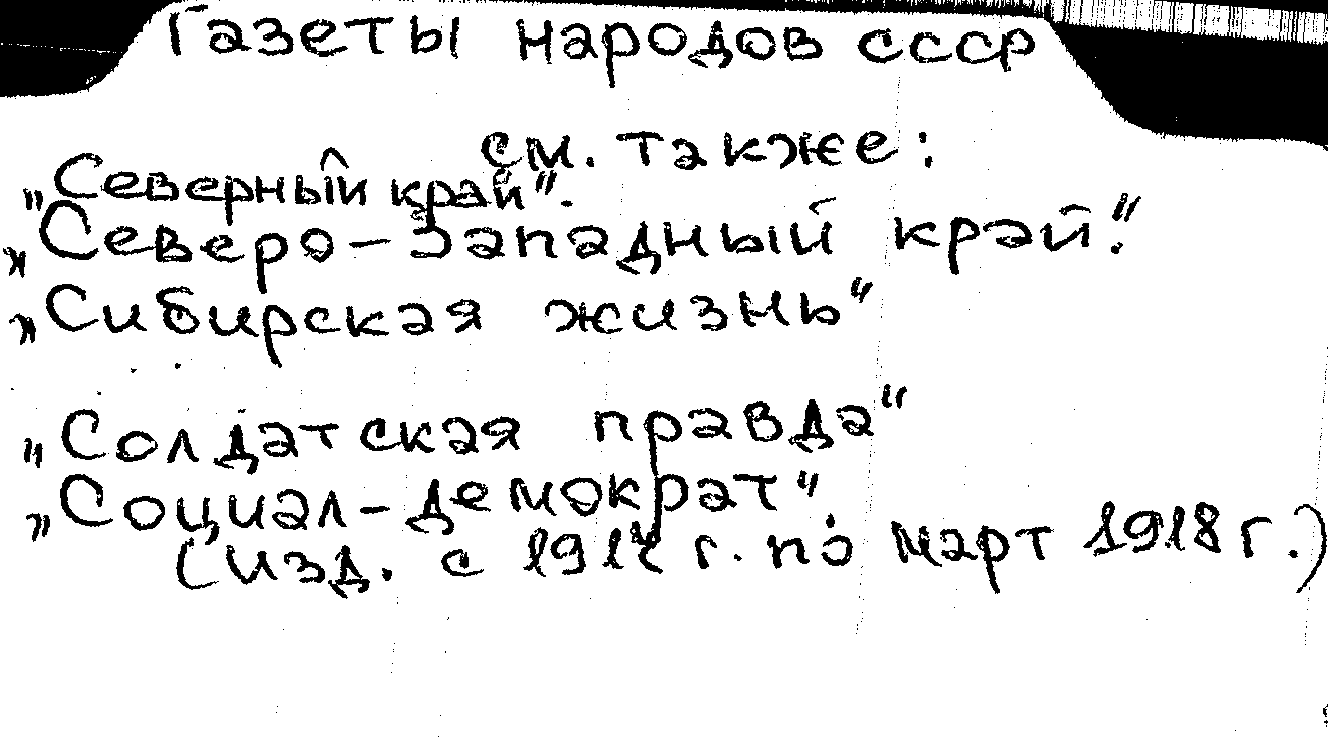 Газеты народов СССР
см. также:
„Северный край".
„Северо-Западный край".
„Сибирская жизнь"
„Солдатская правда"
„Социал-демократ".
(изд. с г. по март 1918 г.)